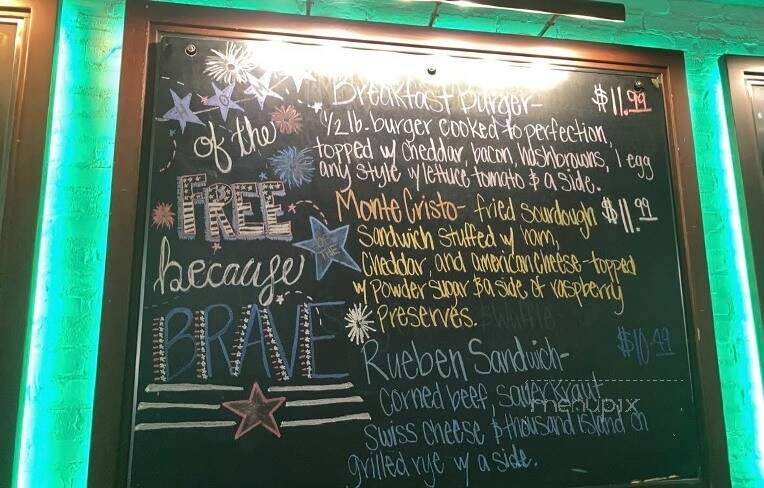 HOME
of the
FREE
because
OF THE
BRAVE
Breakfast Burger- $11.99
1/2 lb. burger cooked to perfection,
topped w/ cheddar, bacon, hashbrowns, 1 egg
any style w/ lettuce tomato & a side.
Monte Cristo- fried sourdough $11.99
Sandwich stuffed w/ ham,
Cheddar, and american cheese - topped
w/ powder sugar & a side of raspberry
Preserves.
Rueben Sandwich- $10.49
Corned beef, sauerkraut
swiss cheese & thousand island on
grilled rye w/ a side.
menupix